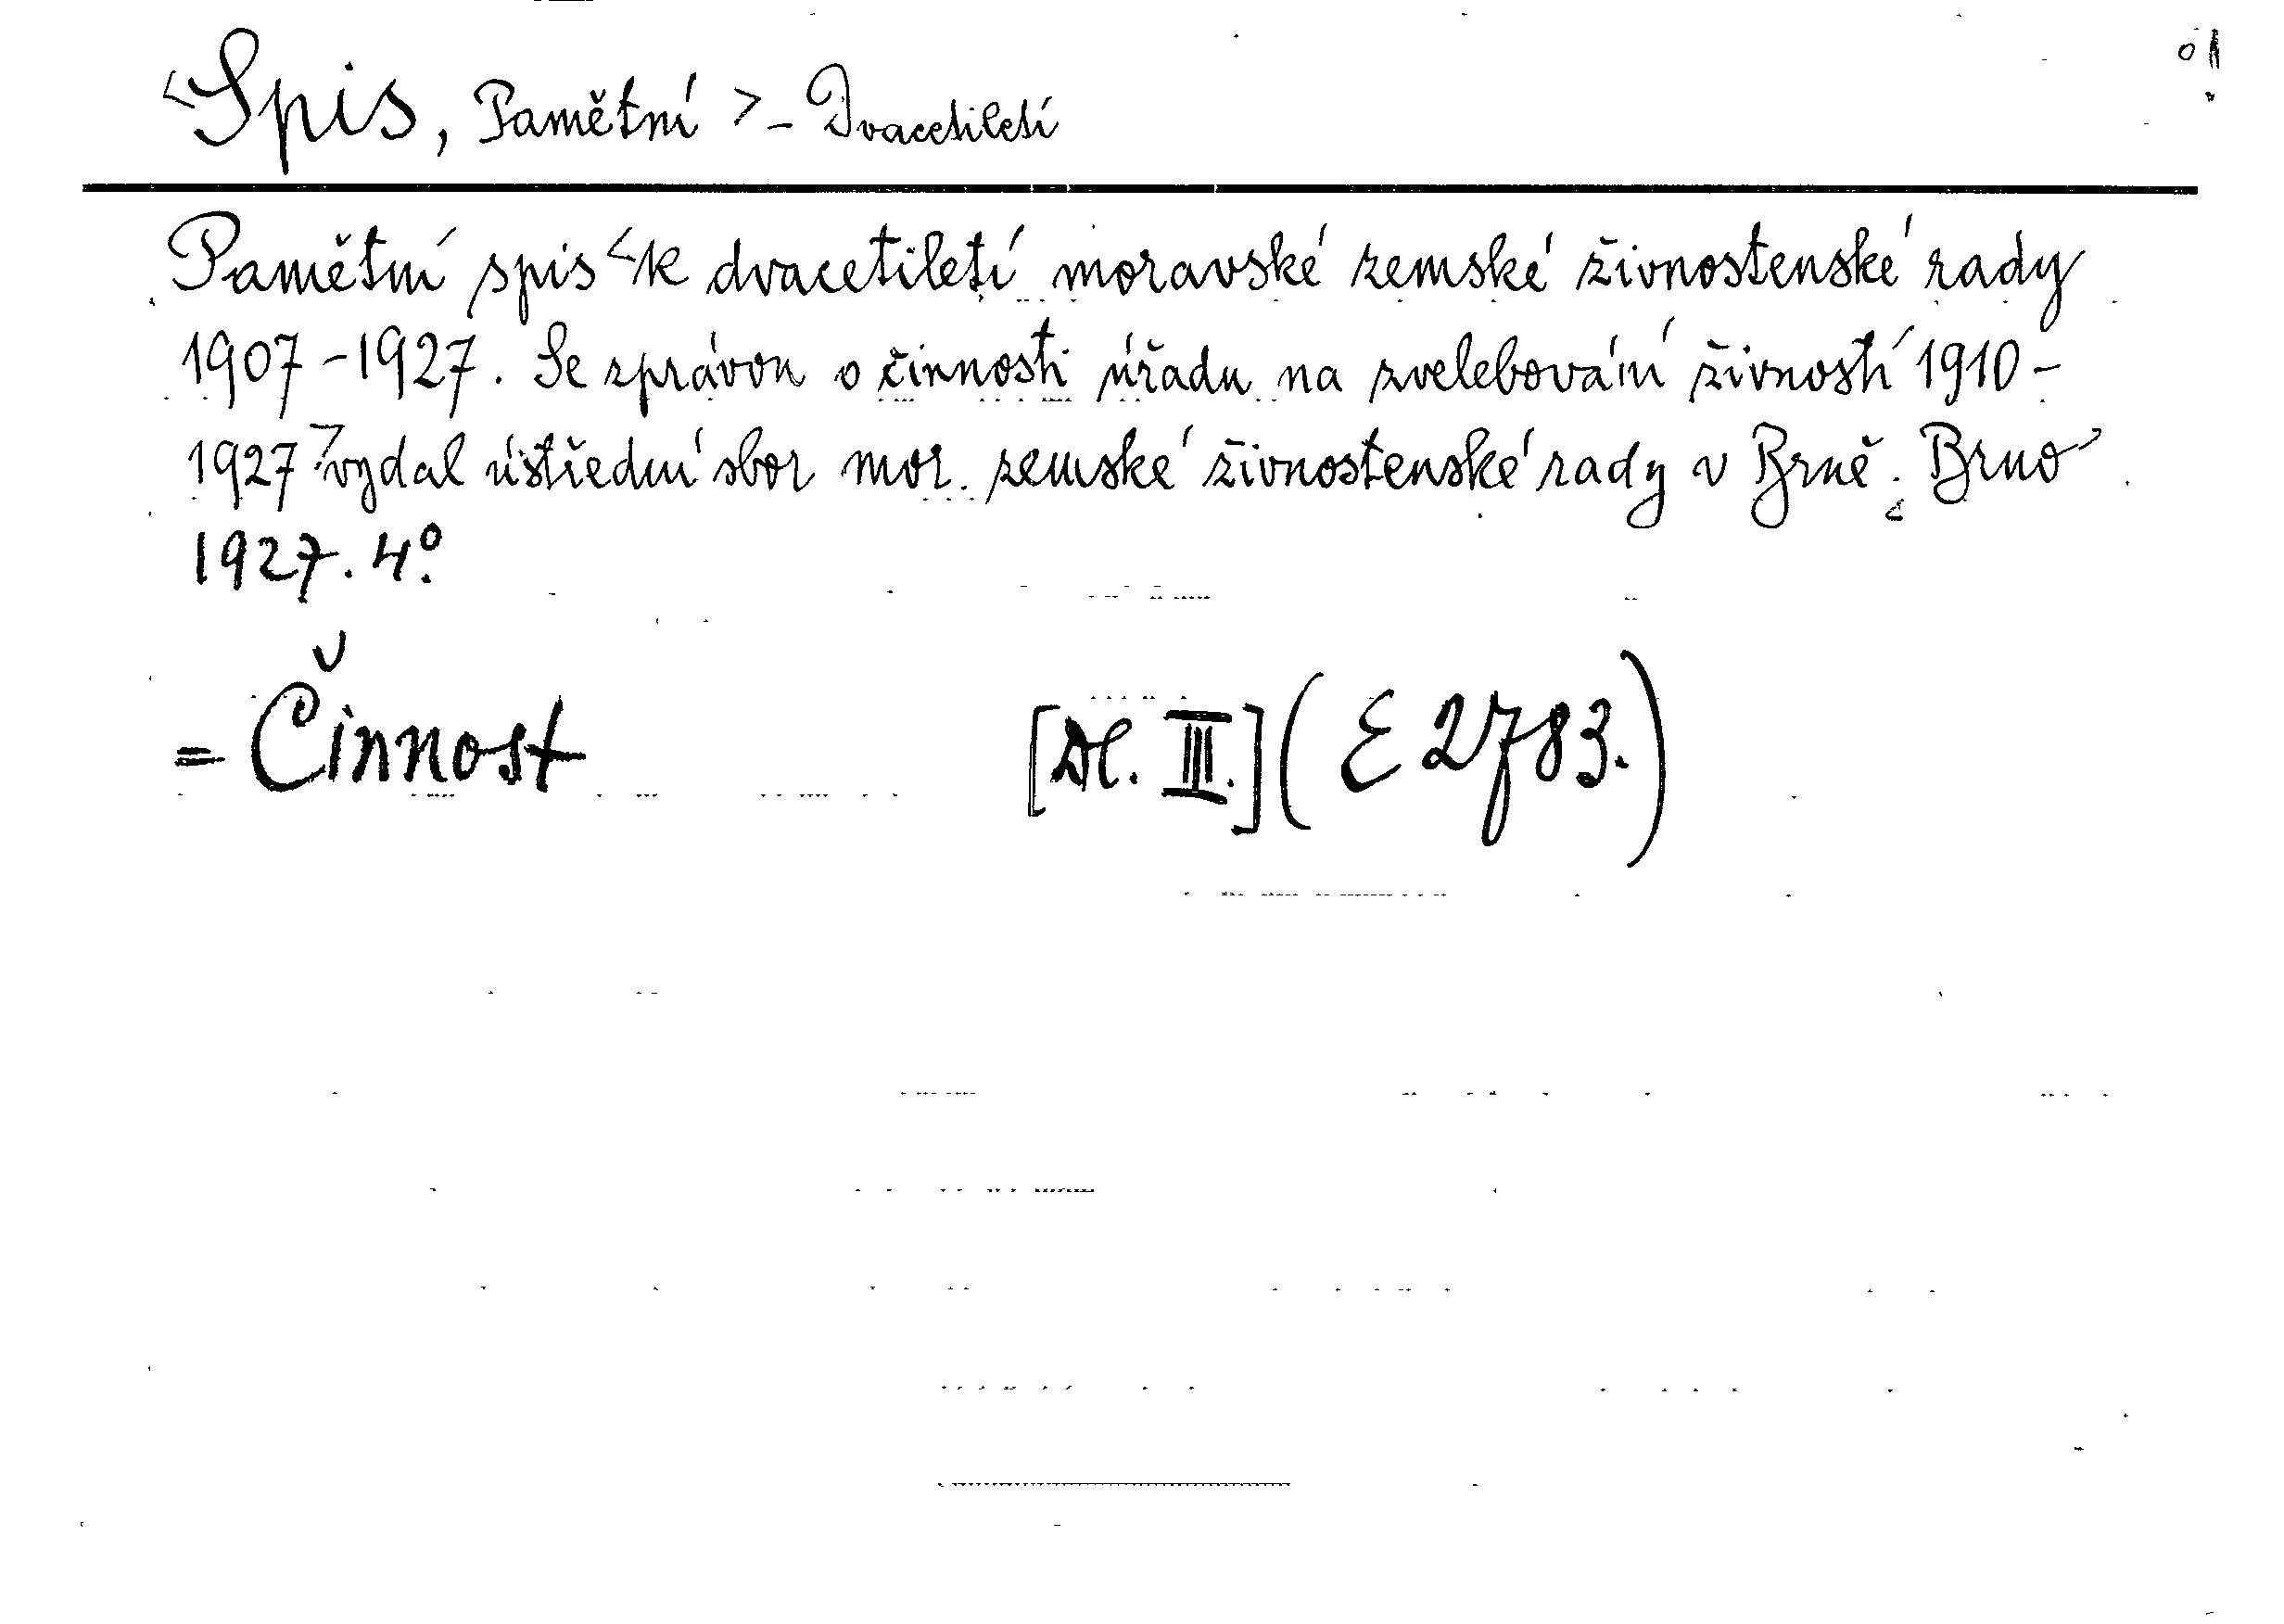 <Spis, Pamětní> - Dvacetiletí
Pamětní spis <k dvacetiletí moravské zemské živnostenské rady
1907-1927. Se zprávou o činnosti úřadu na zvelebování živností 1910-
1927> vydal ústřední sbor mor. zemské živnostenské rady v Brně. Brno
1927. 4°.
= Činnost [Dl. III.] (E 2783.)